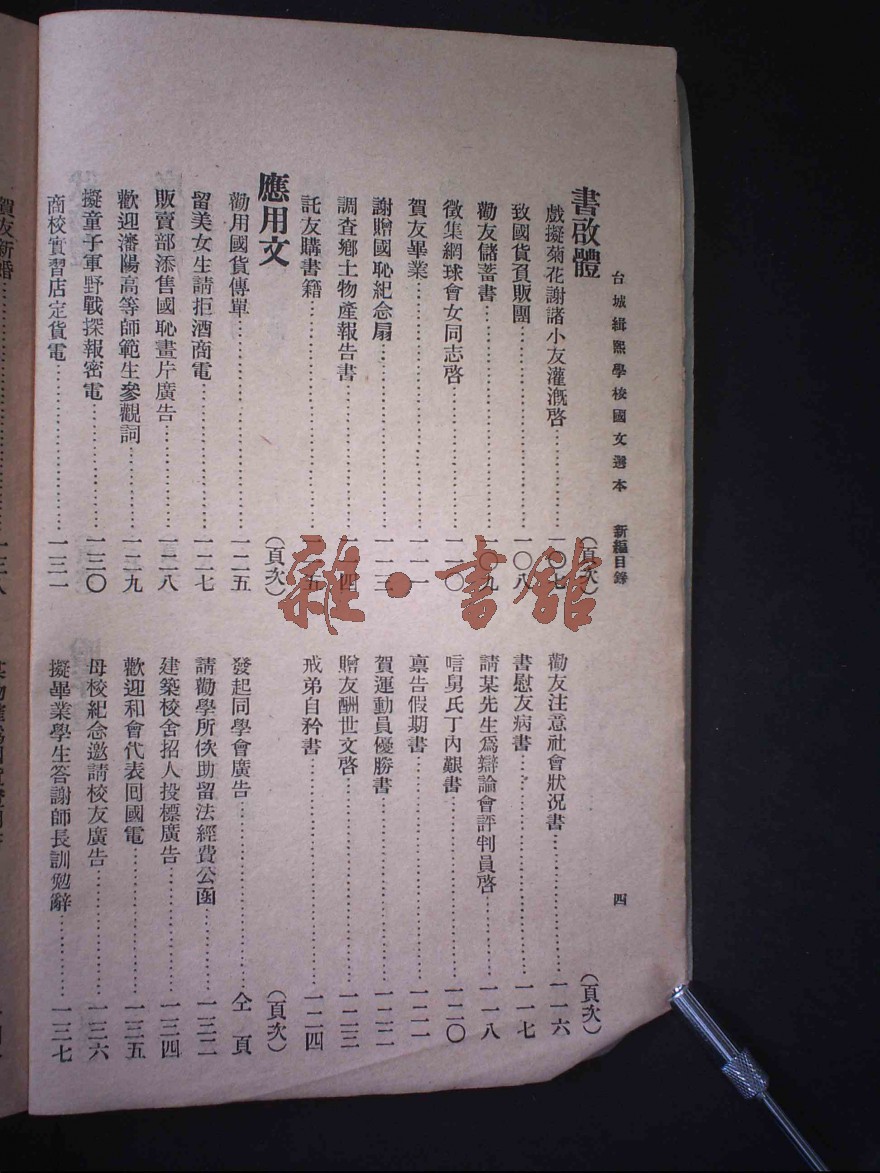 台城緝熙學校國文選本 新編目錄 四
書啟體 (頁次) (頁次)
戲擬菊花謝諸小友灌漑啓 一〇七
致國貨負販團 一〇八
勸友儲蓄書 一〇九
徵集網球會女同志啓 一一〇
賀友畢業 一一一
謝贈國恥紀念扇 一一三
調查鄉土物產報告書 一一四
託友購書籍 一一五
勸友注意社會狀況書 一一六
書慰友病書 一一七
請某先生爲辯論會評判員啓 一一八
唁舅氏丁內艱書 一二〇
禀告假期書 一二一
賀運動員優勝書 一二二
贈友酬世文啓 一二三
戒弟自矜書 一二四
應用文 (頁次) (頁次)
勸用國貨傳單 一二五
留美女生請拒酒商電 一二七
販賣部添售國恥畫片廣告 一二八
歡迎瀋陽高等師範生參觀詞 一二九
擬童子軍野戰探報密電 一三〇
商校實習店定貨電 一三一
發起同學會廣告 仝頁
請勸學所佽助留法經費公函 一三二
建築校舍招人投標廣告 一三四
歡迎和會代表回國電 一三五
母校紀念邀請校友廣告 一三六
擬畢業學生答謝師長訓勉辭 一三七
賀友新婚 一三八
雜·書館